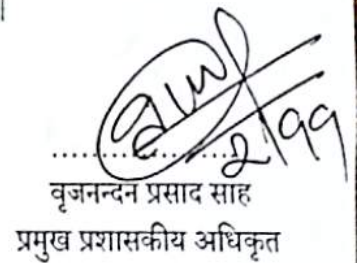 २/११
वृजनन्दन प्रसाद साह
प्रमुख प्रशासकीय अधिकृत